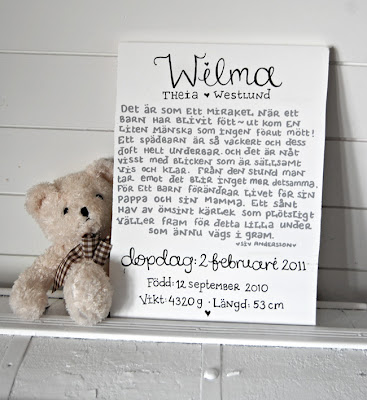 Wilma
Theia ♥ Westlund
Det är som ett mirakel när ett
barn har blivit fött~ut kom en
liten mänska som ingen förut mött!
Ett spädbarn är så vackert och dess
doft helt underbar. och det är nåt
visst med blicken som är sällsamt
vis och klar. Från den stund man
tar emot det blir inget mer detsamma.
För ett barn förändrar livet för sin
pappa och sin mamma. Ett sånt
hav av ömsint kärlek som plötsligt
väller fram för detta lilla under
som ännu vägs i gram.
♥Siv Andersson♥
dopdag: 2 februari 2011
Född: 12 september 2010
Vikt: 4320 g · Längd: 53 cm
♥